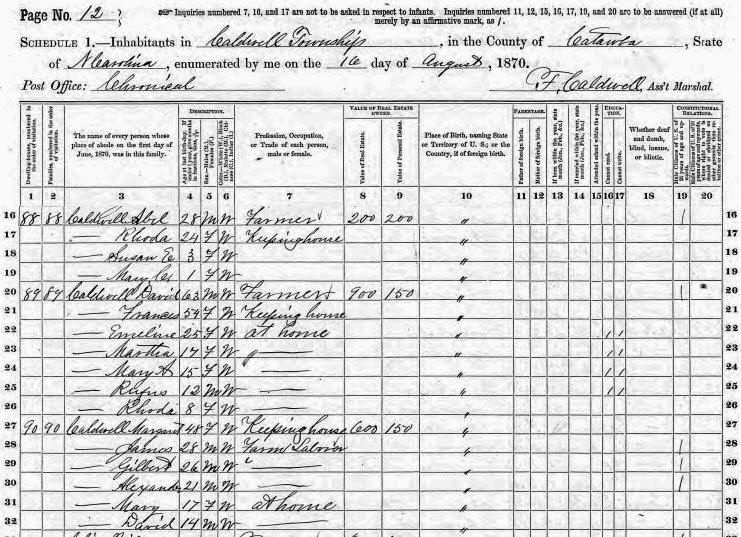 Page No. 12
Inquiries numbered 7, 16, and 17 are not to be asked in respect to infants. Inquiries numbered 11, 12, 15, 16, 17, 19, and 20 are to be answered (if at all) merely by an affirmative mark, as /.
SCHEDULE 1.—Inhabitants in Caldwell Township, in the County of Catawba, State
of N Carolina, enumerated by me on the 16 day of August, 1870.
Post Office: Chronical
F, Caldwell, Ass't Marshal.
DESCRIPTION.
VALUE OF REAL ESTATE OWNED.
PARENTAGE.
EDUCATION.
CONSTITUTIONAL RELATIONS.
Dwelling-houses, numbered in the order of visitation.
Families, numbered in the order of visitation.
The name of every person whose place of abode on the first day of June, 1870, was in this family.
Profession, Occupation, or Trade of each person, male or female.
Value of Real Estate.
Value of Personal Estate.
Place of Birth, naming State or Territory of U. S.; or the Country, if of foreign birth.
Father of foreign birth.
Mother of foreign birth.
If born within the year, state month (Jan., Feb., &c.)
If married within the year, state month (Jan., Feb., &c.)
Attended school within the year.
Cannot read.
Cannot write.
Whether deaf and dumb, blind, insane, or idiotic.
1 2 3 4 5 6 7 8 9 10 11 12 13 14 15 16 17 18 19 20
16 88 88 Caldwell Abil 28 M W Farmer 200 200 〃 / 16
17 Rhoda 24 F W Keeping house 〃 17
18 — Susan E 3 F W 〃 18
19 — Mary C 1 F W 〃 19
20 89 89 Caldwell David 63 M W Farmer 900 150 〃 / 20
21 — Frances 54 F W Keeping house 〃 21
22 — Emeline 25 F W at home 〃 / / 22
23 — Martha 17 F W 〃 — 〃 / / 23
24 — Mary A 15 F W — 〃 / / 24
25 — Rufus 12 M W — 〃 / / 25
26 — Rhoda 8 F W — 〃 26
27 90 90 Caldwell Margaret 48 F W Keeping house 600 150 〃 27
28 — James 28 M W Farm Laborer 〃 / 28
29 — Gilbert 26 M W 〃 — 〃 / 29
30 — Alexander 21 M W — 〃 / 30
31 — Mary 17 F W at home 〃 31
32 — David 14 M W — 〃 32